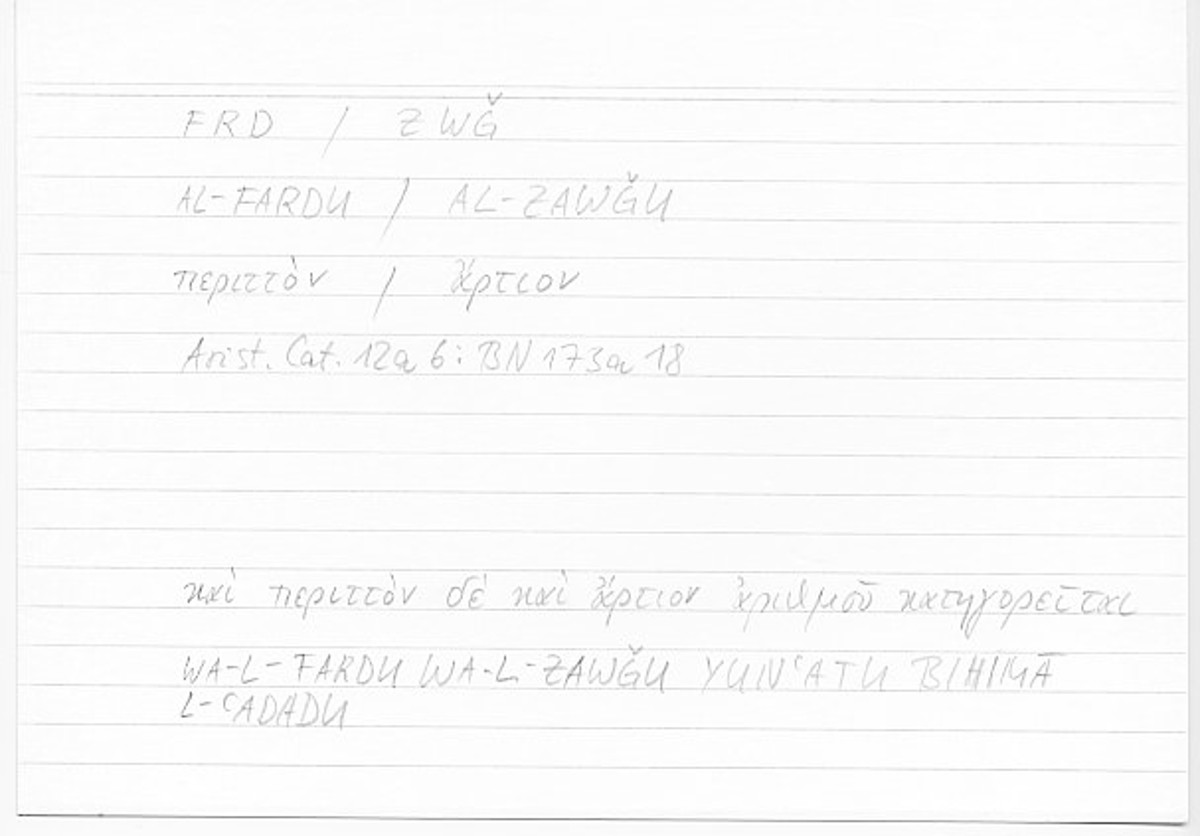 FRD / ZWǦ
AL-FARDU / AL-ZAWǦU
περιττὸν / ἄρτιον
Arist. Cat. 12a 6: BN 173a 18
καὶ περιττὸν δὲ καὶ ἄρτιον ἀριθμοῦ κατηγορεῖται
WA-L-FARDU WA-L-ZAWǦU YUNʿATU BIHIMĀ
L-ʿADADU